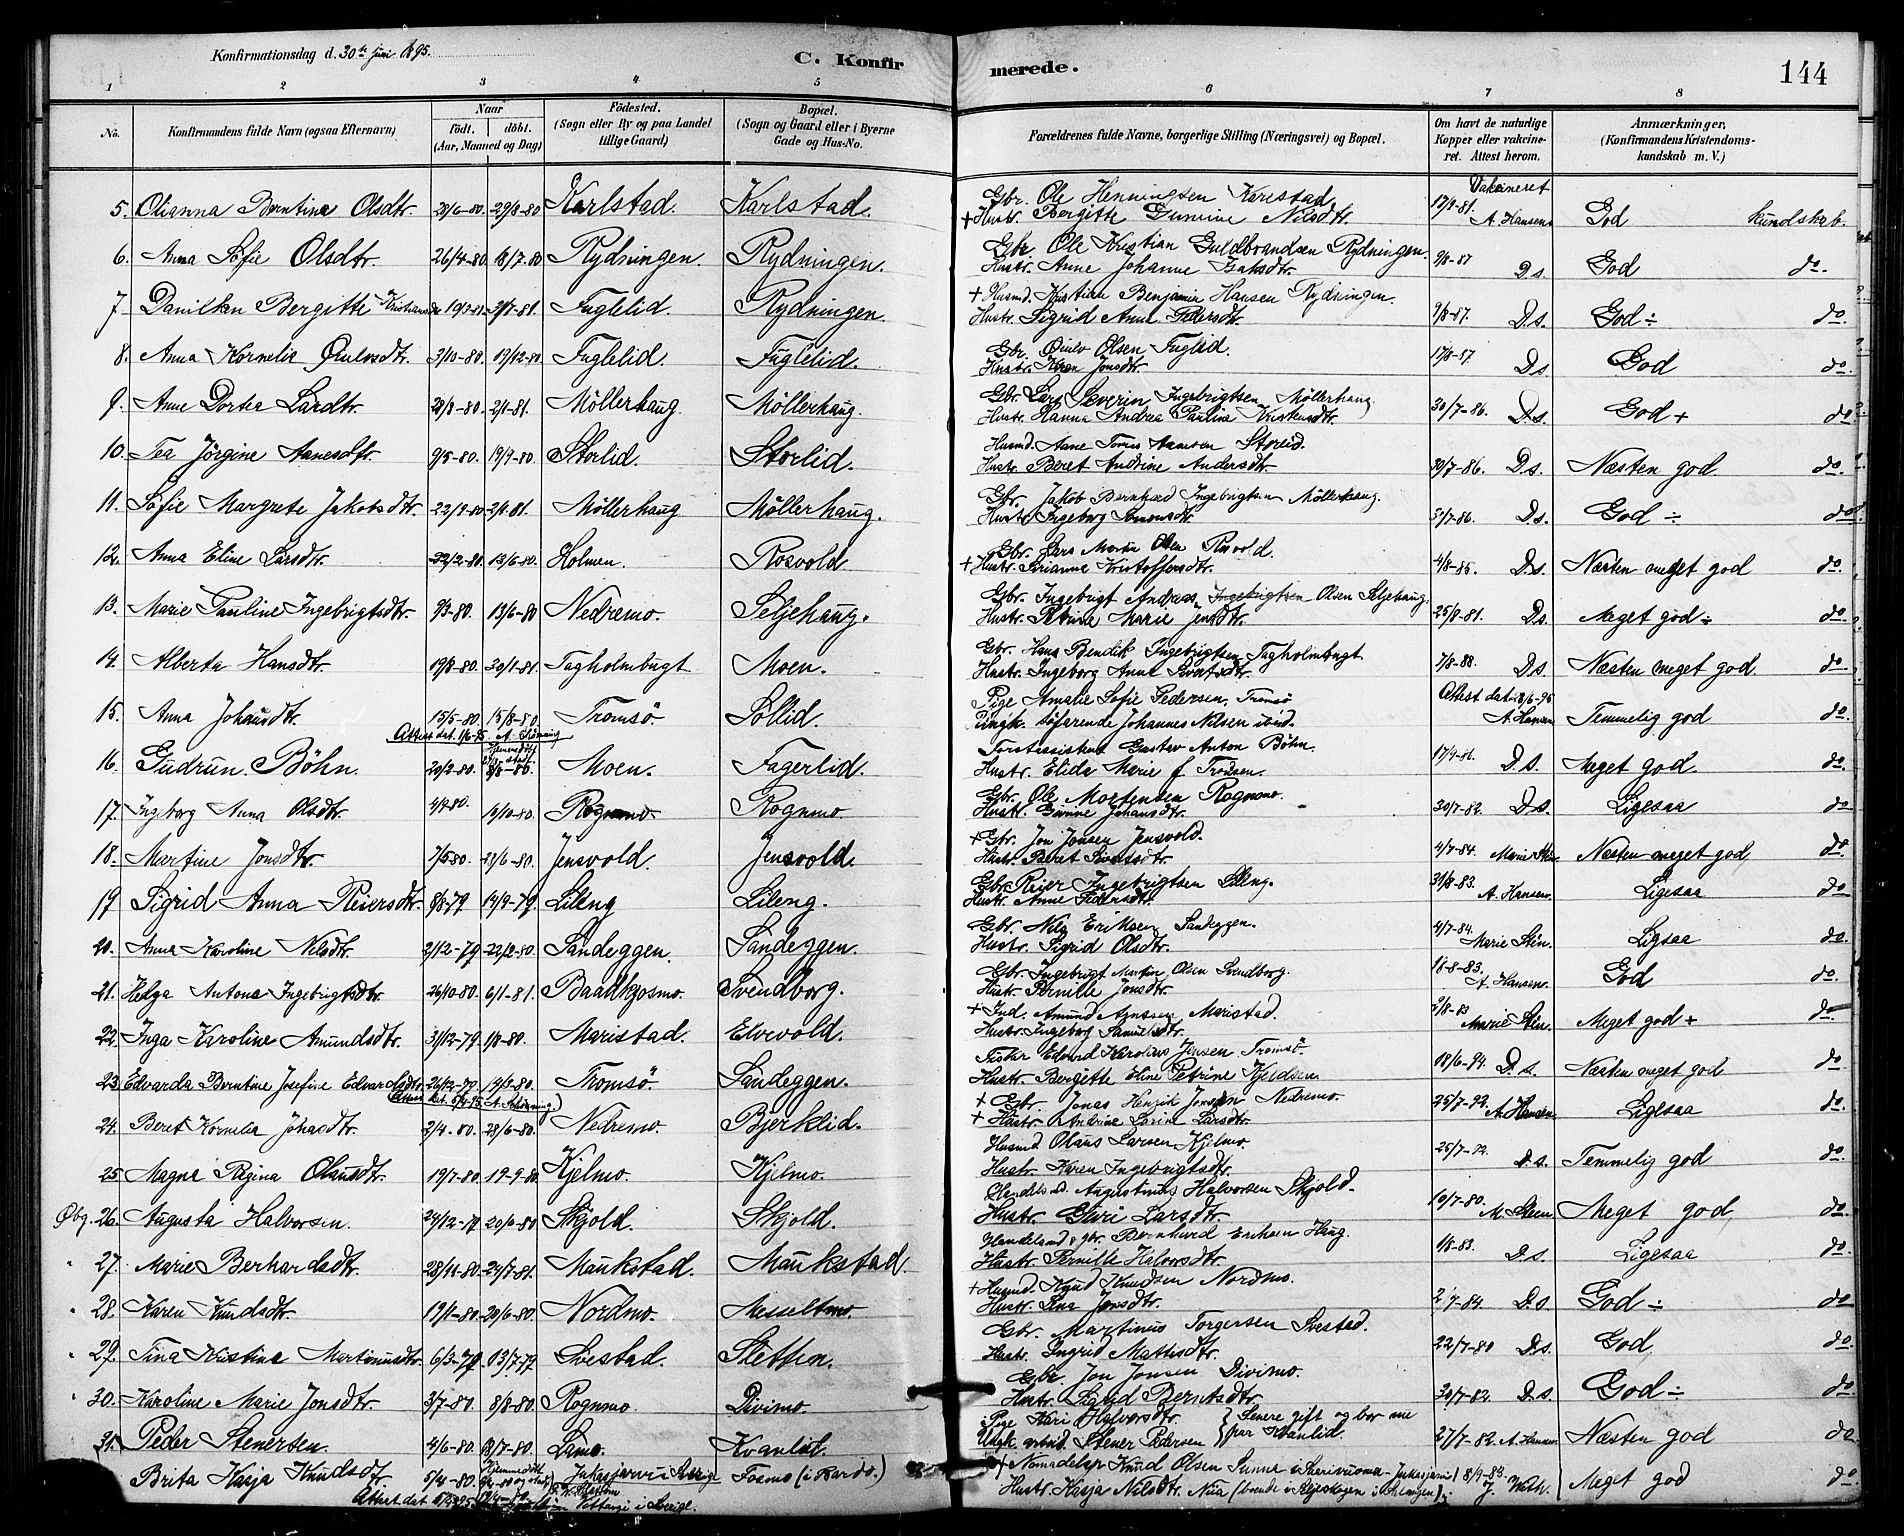 Konfirmationsdag d. 30te Juni 1895.
C. Konfirmerede.
144
1 2 3 4 5 6 7 8
No.
Konfirmandens fulde Navn (ogsaa Efternavn)
Naar
födt. döbt.
(Aar, Maaned og Dag)
Födested.
(Sogn eller By og paa Landet tillige Gaard)
Bopæl.
(Sogn og Gaard eller i Byerne Gade og Hus-No.
Forældrenes fulde Navne, borgerlige Stilling (Næringsvei) og Bopæl.
Om havt de naturlige Kopper eller vakcineret. Attest herom.
Anmærkninger,
(Konfirmandens Kristendomskundskab m. V.)
5. Olianna Berntine Olsdtr. 29/8-80 Karlstad. Karlstad. Gbr. Ole Henningsen Karlstad Vakcineret
+ Hustr. Bergitte Gunnine Nilsdtr. 17/9-81. A. Hansen God kundskab.
6. Anna Sofie Olsdtr. 26/4-80 18/7-80 Rydningen Rydningen. Gbr. Ole Kristian Guldbrandsen Rydningen.
Hustr. Anne Johanne D.s. God do.
7. Danikken Bergitte Fuglelid. Rydningen. + Husmd. Kristian Benjamin Hansen Rydningen.
Hustr. Sigrid Anna Pedersdtr. 9/8-87. D.s. God ÷ do.
8. Anna Kornelie 3/10-80. 19/12-80. Fuglelid. Fuglelid. Gbr. Olsen Fuglelid.
Hustr. Karen Jonsdtr. 17/8-87 D.s. God do.
9. Anne Dortea Larsdtr. 2/1-81. Möllerhaug. Möllerhaug. Gbr. Lars Severin Ingebrigtsen Möllerhaug
Hustr. Hanna Andrea Pauline 30/7-86. D.s. God + do.
10. Tea Jörgine Aanesdtr. 9/5-80. 19/9-80. Storlid. Storlid. Husmd. Aane Tomas Aanesen Storlid.
Hustr. Beret Andrine Andersdtr. 30/7-86. D.s. Næsten god. do.
11. Sofie Margrete Jakobsdtr. 22/9-80. 2/1-81. Möllerhaug Möllerhaug. Gbr. Jakob Bernhard Ingebrigtsen Möllerhaug
Hustr. Ingeborg Simonsdtr. 31/7-86. D.s. God ÷ do.
12. Anna Eline Larsdtr. 22/2-80. 13/6-80. Holmen. Rosvold Gbr. Lars Martin Olsen Rosvold.
+ Hustr. Kristoffersdtr. 4/8-85. D.s. Næsten meget god do.
13. Marie Pauline Ingebrigtsdtr. 9/3-80. 13/6-80 Nedremo. Seljehaug. Gbr. Ingebrigt Andreas Ingebrigtsen Olsen Seljehaug.
Hustr. Petrina Marie Jensdtr. 25/8-81. D.s. Meget god ÷ do.
14. Alberta Hansdtr. 19/8-80. 30/1-81. Tagholmbugt Moen. Gbr. Hans Bendik Ingebrigtsen Tagholmbugt
Hustr. Ingeborg Anna Sivertsdtr. 7/8-88. D.s. Næsten meget god. do.
15. Anna Johansdtr. 15/5-80. 15/8-80. Tromsö. Söllid. Pige Amalie Sofie Pedersen, Tromsö Attest dat. 18/6-95
Attest dat. 1/6-95. A. Ungk. söfarende Johannes Nilsen ibid. A. Hansen Temmelig god do.
16. Gudrun Böhn. 20/2-80. Moen. Fagerlid. Forstassistent Gustav Anton Böhn.
Hustr. Elida Marie f. 17/9-81. D.s. Meget god. do.
17. Ingeborg Anna Olsdtr. 4/9-80. 10/10-80. Rognmo. Rognmo. Gbr. Ole Mortensen Rognmo.
Hustr. Johansdtr. 30/7-82. D.s. Ligesaa do
18. Martine Jonsdtr. 7/5-80. Jensvold. Jensvold. + Gbr. Jon Jonsen Jensvold.
Hustr. Beret Sivertsdtr. 4/7-84. Marie Sten. Næsten meget god do
19 Sigrid Anna Reiersdtr. 8/8-79 14/9-79. Lileng Lileng. Gbr. Reier Ingebrigtsen Lileng.
Hustr. Anne Pedersdtr. 31/8-83. A. Hansen. Ligesaa do
20. Anna Karoline Nilsdtr. 21/12-79 22/2-80. Sandeggen. Sandeggen. Gbr. Nils Eriksen Sandeggen.
Hustr. Sigrid Olsdtr. 4/7-84. Marie Sten. Ligesaa do
21. Helga Antona Ingebrigtsdtr. 26/10-80. 6/1-81. Baadkjosmo. Svendborg. Gbr. Ingebrigt Martin Olsen Svendborg.
Hustr. Pernille Jonsdtr. 18-8-83. A. Hansen. God do.
22. Inga Karoline Amundsdtr. 31/12-79 1/8-80. Maristad. Elvevold. + Ind. Amund Maristad.
Hustr. Ingeborg Samuelsdtr. 2/8-83 Marie Sten. Meget god + do.
23. Edvarda Berntine Josefine Edvardsdtr. 14/3-80. Tromsö. Sandeggen. Fisker Edvard Karolius Jensen Tromsö.
Hustr. Bergitte Eline Petrine 18/6-94. D.s. Næsten meget god do
24. Beret Kornelia 2/4-80. 28/6-80. Nedremo. Bjerklid. + Gbr. Jonas Henrik Nedremo.
+ Hustr. Andrine Larsdtr. 25/7-92. A. Hansen. Ligesaa do
25. Magna Regina Olausdtr. 19/7-80. 19-9-80. Kjelmo. Kjelmo. Husmd. Olaus Larsen Kjelmo.
Hustr. Karen Ingebrigtsdtr. D.s. Temmelig god do.
Øbg. 26. Augusta Halvorsen. 20/6-80 Skjold. Skjold. Handelsmd. Augustinus Halvorsen Skjold.
Hustr. Guri Larsdtr. 10/7-80. M. Steen. Meget god, do.
" 27. Marie Berhardsdtr. 28/11-80. 24/7-81. Maukstad. Maukstad Handelsmd. & gbr. Bernhard Eriksen Haug.
Hustr. Pernille Halvorsdtr. 1/8-83. D.s. Ligesaa do.
" 28. Karen Knudsdtr. 19/1-80. 20/6-80. Nordmo. Messeltmo. + Husmd. Knud Knudsen Nordmo.
Hustr. Jonsdtr. 2/7-84. D.s. God ÷ do
" 29. Tina Kristina Martinusdtr. 6/3-79. 13/7-79 Svestad. Sletten. Gbr. Martinus Torgersen Svestad.
Hustr. Ingrid Mattisdtr. 22/7-80 D.s. God, do
" 30. Karoline Marie Jonsdtr. 3/7-80. 8/8-80. Rognmo. Divimo. Gbr. Jon Jonsen Divimo.
Hustr. Sigrid Berntsdtr. 30/7-82. D.s. God ÷ do
31. Peder Stenersen. 4/6-80. 18/7-80. Lamo. Kvanlid. Pige Kari Halvorsdtr. } Senere gift og bor nu
Ungk. arbeid. Stener Pedersen } paa Kvanlid. 27/7-82. A. Hansen. Næsten god do
Brita Kasja Knudsdtr 5/4-80. Jukasjarvi i Sverige Fosmo (i Bardo.) + Nomadelap Knud Olsen Sunna i Saarivuoma Jukasjarvi
Attest dat. i Sverige. Hustr. Kasja Nilsdtr. Nia 8/9-83. J. Meget god do.